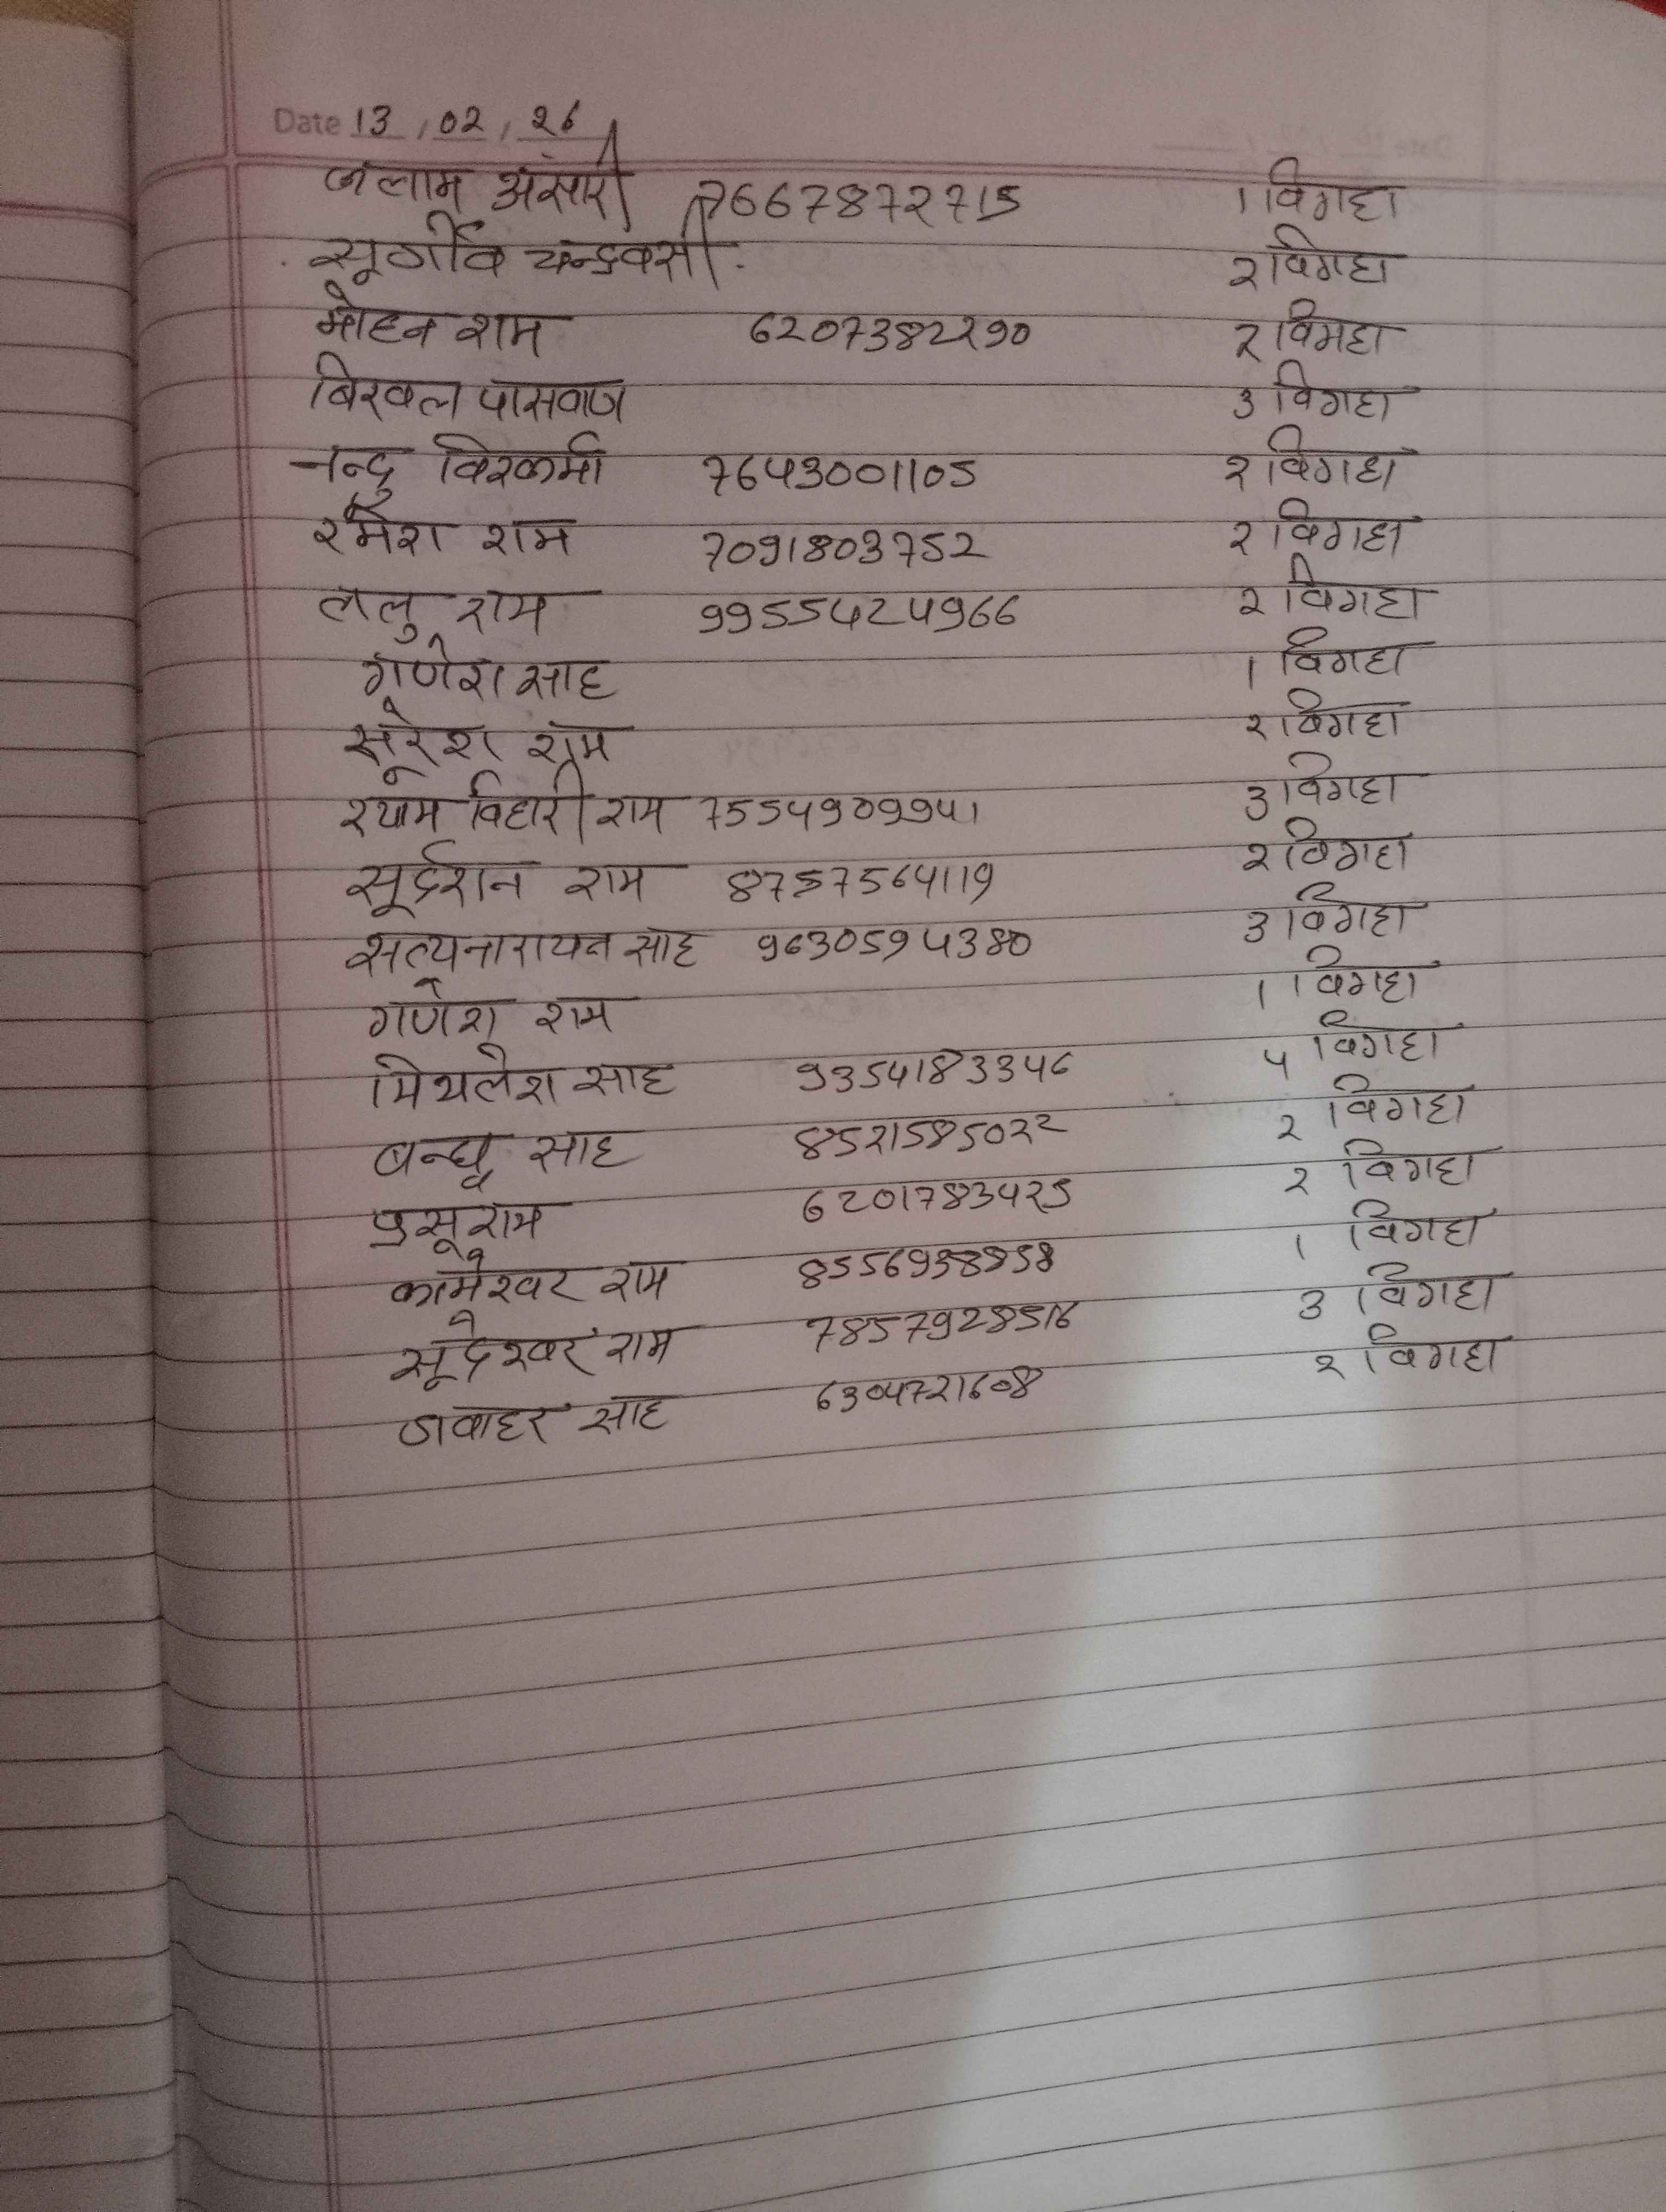 Date 13/02/26
जलाम अंसारी 7667872715 1 विगहा
सूर्गीव चन्द्रवसी 2 विगहा
मोहन राम 6207382290 2 विगहा
बिरवल पासवान 3 विगहा
नन्दु विश्कर्मा 7643001105 2 विगहा
रमेश राम 7091803752 2 विगहा
ललु राम 9955424966 2 विगहा
गणेश साह 1 विगहा
सूरेश राम 2 विगहा
श्याम विहारी राम 7554909941 3 विगहा
सूर्दशन राम 8757564119 2 विगहा
सत्यनारायन साह 9630594380 3 विगहा
गणेश राम 1 विगहा
मिथलेश साह 9354183346 4 विगहा
बन्धू साह 8521585022 2 विगहा
प्रसूराम 6201783425 2 विगहा
कामेश्वर राम 1 विगहा
सूदेश्वर राम 3 विगहा
जवाहर साह 6304721608 2 विगहा